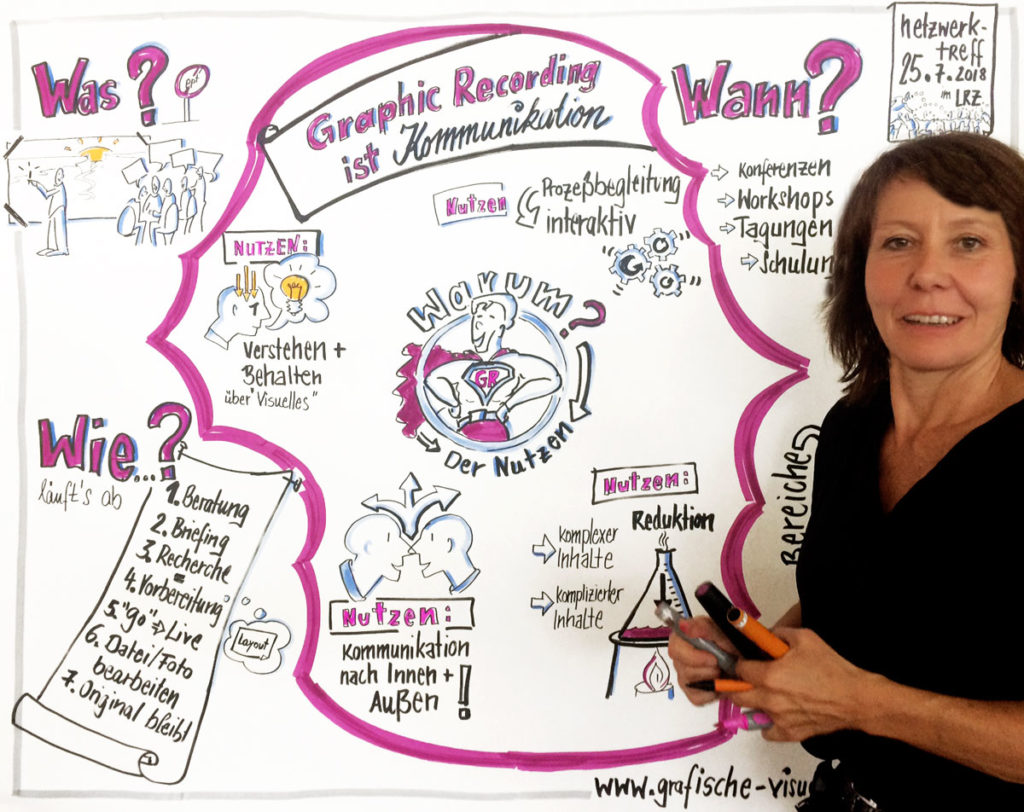 Was?
Graphic Recording
ist Kommunikation
Wann?
netzwerk-
treff
25.7.2018
im LRZ
Konferenzen
Workshops
Tagungen
Nutzen
Prozeßbegleitung
interaktiv
GO
NUTZEN:
verstehen +
Behalten
über "Visuelles"
Warum?
GR
Der Nutzen
Wie...?
läuft's ab
1. Beratung
2. Briefing
3. Recherche
=
4. Vorbereitung
5. "Go" => Live
6. Datei/Foto
bearbeiten
7. Original bleibt
Layout
Nutzen:
Kommunikation
nach Innen +
Außen!
Nutzen:
Reduktion
komplexer
Inhalte
komplizierter
Inhalte
Bereiche
www.grafische-visu